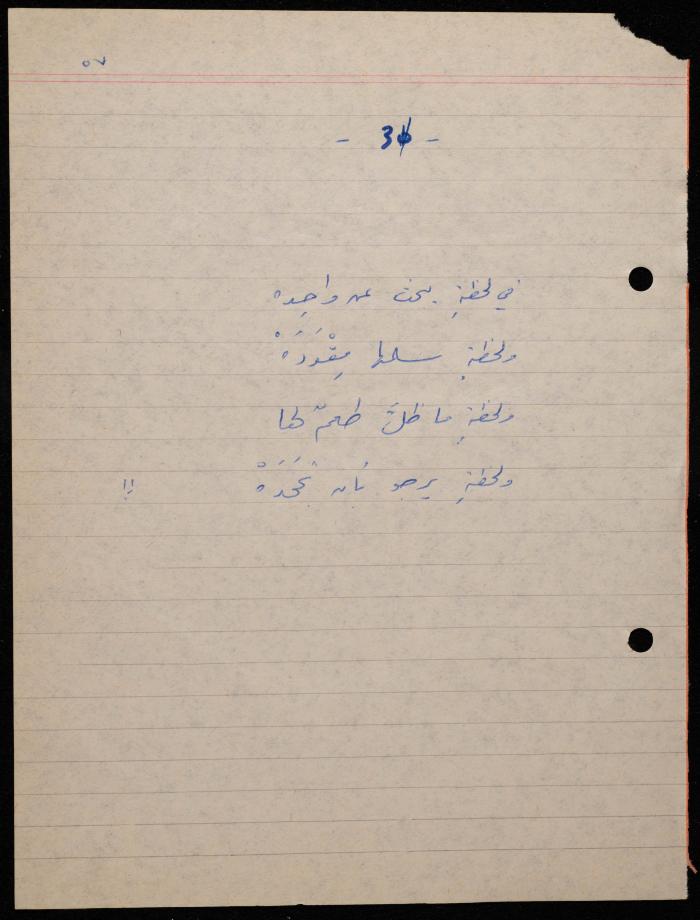 ٥٧
- 3 -
في لحظةٍ يبحث عن واحِده
ولحظةٍ سلها مِقْوَدَهْ
ولحظةٍ ما ظلَّ طعمٌ لها
ولحظةٍ يرجو بأن تَجْحَدَهْ !!